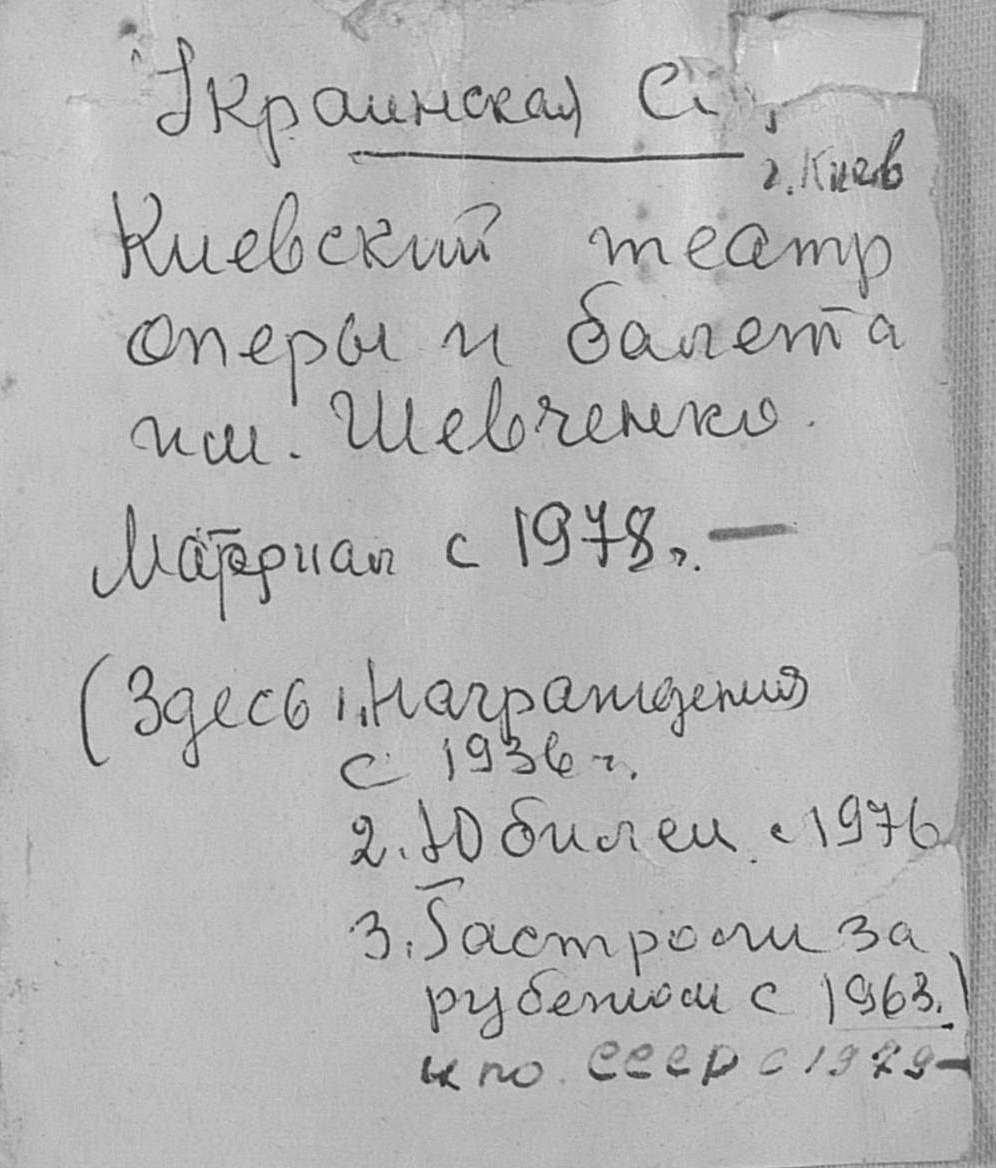 Украинская С
г. Киев
Киевский театр
оперы и балета
им. Шевченко.
Материал с 1978г. —
(Здесь 1. Награждения
с 1936 г.
2. Юбилеи с 1976
3. Гастроли за
рубежом с 1963.)
и по СССР с 1979—